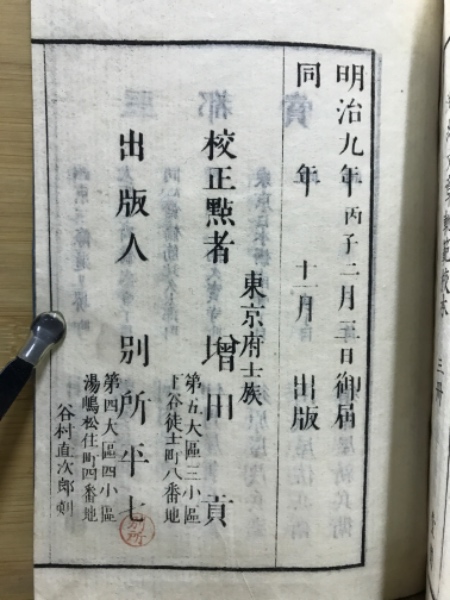 明治九年丙子二月三日御届
同年十一月出版
東京府士族
校正點者 増田貢
第五大區三小區
下谷徒士町八番地
出版人 別所平七
別所
第四大區四小區
湯嶋松住町四番地
谷村直次郎刻
三冊